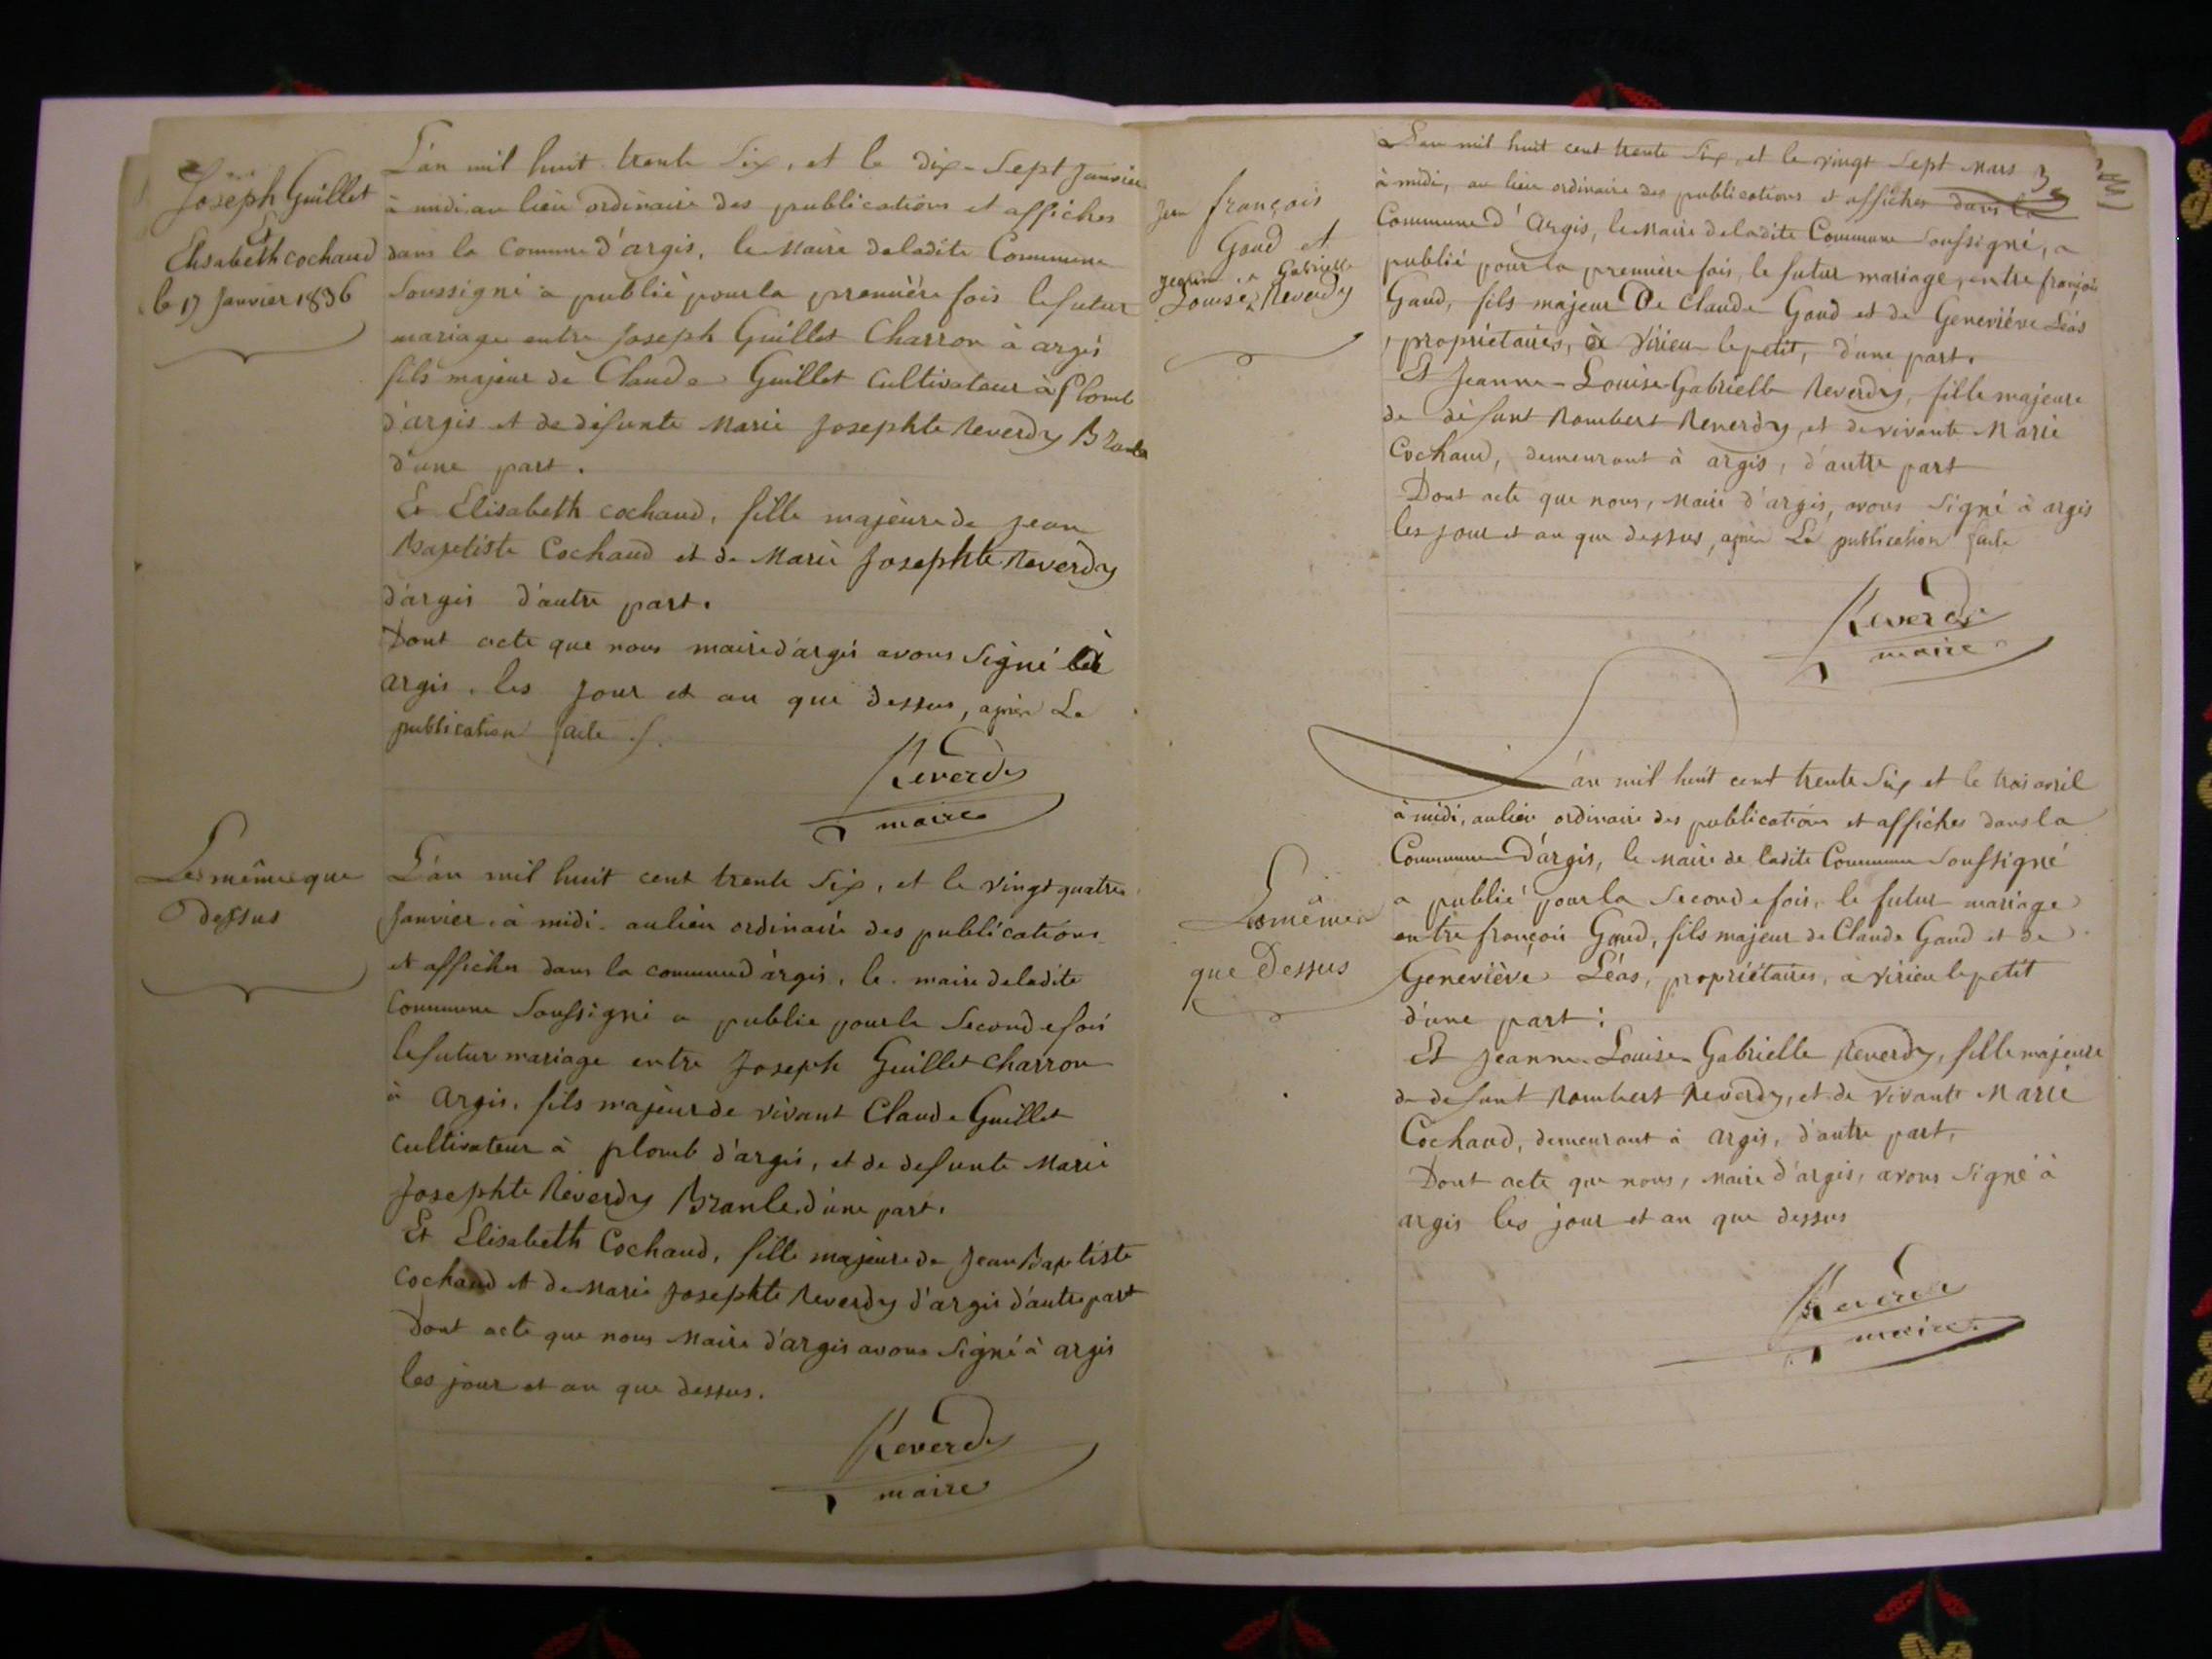 Joseph Guillet
Et
Elisabeth cochaud
le 17 Janvier 1836
L'an mil huit trente Six, et le dix-Sept Janvier
à midi, au lieu ordinaire des publications et affiches
dans la Commune d'argis, le Maire de ladite Commune
Soussigné a publié pour la première fois le futur
mariage entre Joseph Guillet Charron à argis
fils majeur de Claude Guillet Cultivateur à Plomb
d'argis et de défunte Marie Josephte Reverdy Branle
d'une part.
Et Elisabeth cochaud, fille majeure de Jean
Baptiste Cochaud et de Marie Josephte Reverdy
d'argis d'autre part.
Dont acte que nous maire d'argis avons Signé à
argis, les jour et an que dessus, après La
publication faite
Reverdy
maire
Les même que
Dessus
L'an mil huit cent trente Six, et le vingt quatre
Janvier à midi au lieu ordinaire des publications
et affiches dans la commune d'argis, le maire de ladite
Commune Soussigné a publié pour la Seconde fois
le futur mariage entre Joseph Guillet charron
à Argis, fils majeur de vivant Claude Guillet
Cultivateur à plomb d'argis, et de defunte Marie
Josephte Reverdy Branle d'une part.
Et Elisabeth Cochaud, fille majeure de Jean Baptiste
Cochaud et de Marie Josephte Reverdy d'argis d'autre part
Dont acte que nous Maire d'argis avons Signé à argis
les jour et an que dessus.
Reverdy
maire
Jean françois
Gaud et
Jeanne Gabrielle
Louise Reverdy
L'an mil huit cent trente Six, et le vingt Sept Mars
à midi, au lieu ordinaire des publications et affiches dans la
Commune d'Argis, le Maire de ladite Commune Soussigné, a
publié pour la première fois, le futur mariage, entre françois
Gaud, fils majeur De Claude Gaud et de Geneviève Léas
propriétaires, à Virieu le petit, d'une part.
Et Jeanne-Louise Gabrielle Reverdy, fille majeure
de défunt Rombert Reverdy, et de vivante Marie
Cochaud, demeurant à argis, d'autre part
Dont acte que nous, Maire d'argis, avons Signé à argis
les jour et an que dessus, après La publication faite
Reverdy
maire
L'an mil huit cent trente Six et le trois avril
à midi, au lieu ordinaire des publications et affiches dans la
Commune D'argis, le Maire de ladite Commune Soussigné
a publié pour la Seconde fois, le futur mariage
entre françois Gaud, fils majeur de Claude Gaud et de
Geneviève Léas, propriétaires, à Virieu le petit
d'une part:
Et Jeanne Louise Gabrielle Reverdy, fille majeure
de defunt Rombert Reverdy, et de vivante Marie
Cochaud, demeurant à Argis, d'autre part,
Dont acte que nous, Maire d'argis, avons Signé à
argis les jour et an que dessus
Les même
que Dessus
Reverdy
maire